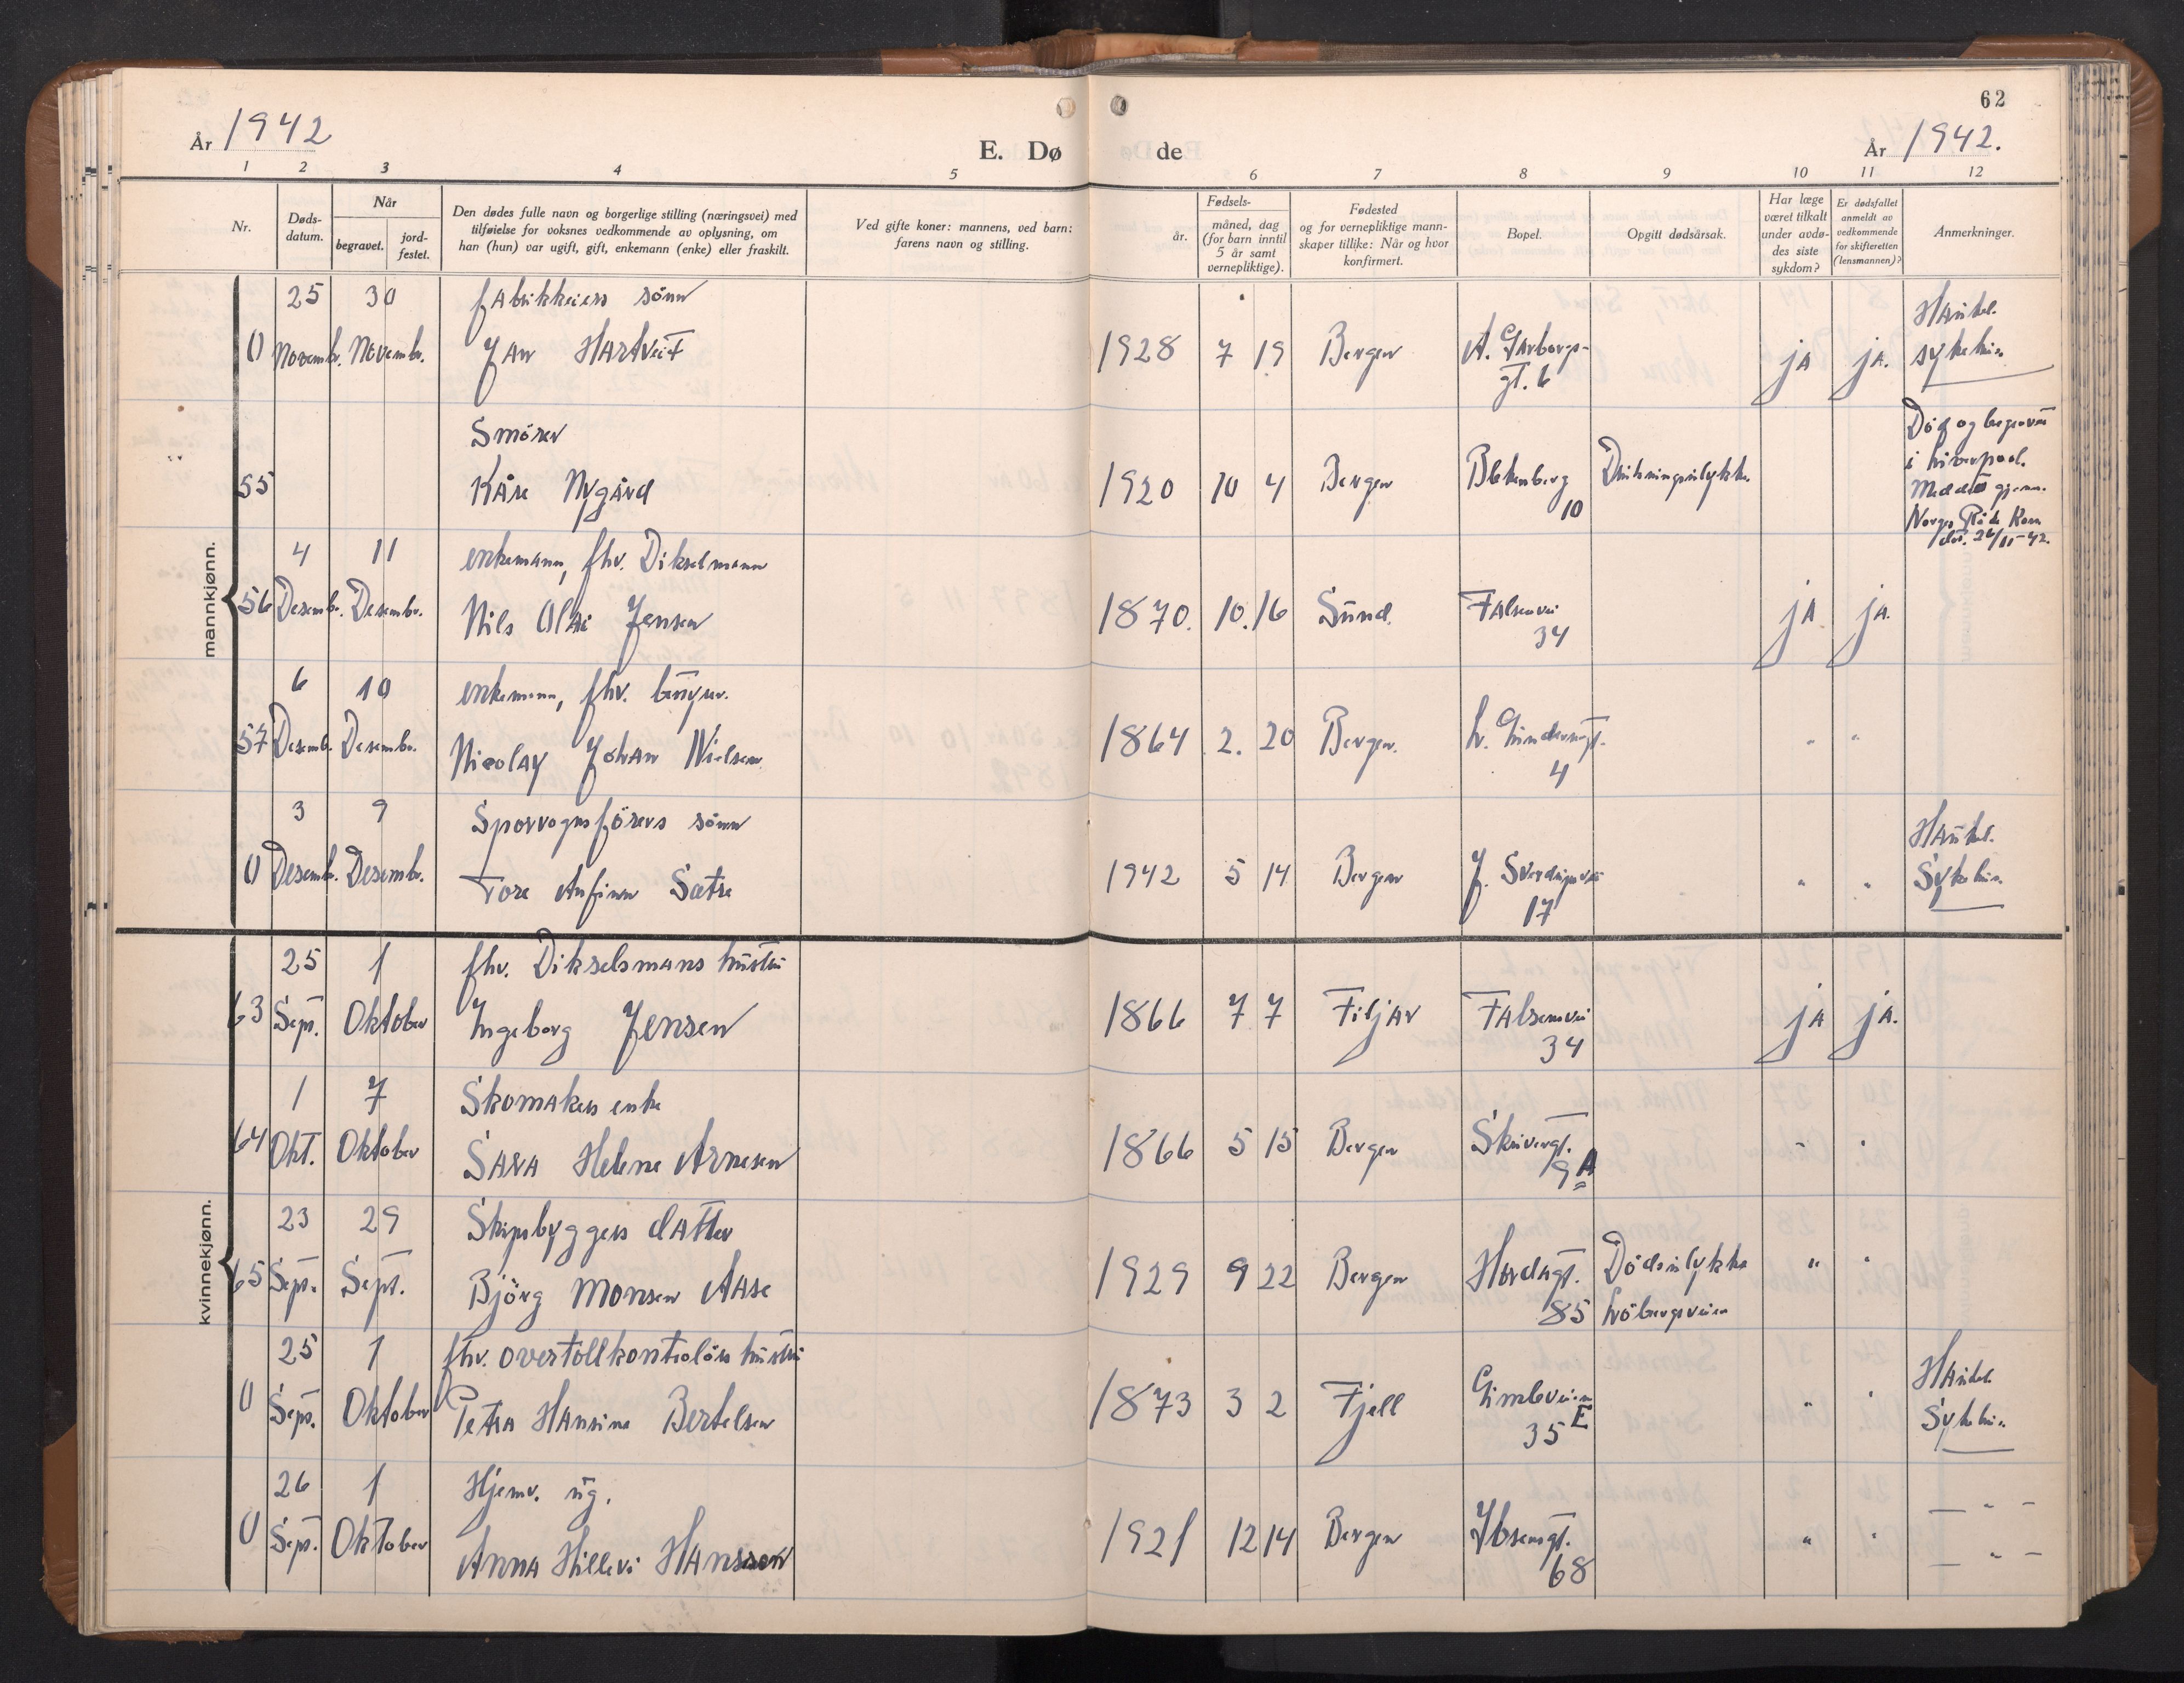 62
År 1942
E. Dø
de
År 1942.
1 2 3 4 5 6 7 8 9 10 11 12
Nr.
Døds-
datum.
Når
begravet.
jord-
festet.
Den dødes fulle navn og borgerlige stilling (næringsvei) med
tilføielse for voksnes vedkommende av oplysning, om
han (hun) var ugift, gift, enkemann (enke) eller fraskilt.
Ved gifte koner: mannens, ved barn:
farens navn og stilling.
Fødsels-
år.
måned, dag
(for barn inntil
5 år samt
vernepliktige).
Fødested
og for vernepliktige mann-
skaper tillike: Når og hvor
konfirmert.
Bopel.
Opgitt dødsårsak.
Har læge
været tilkalt
under avdø-
des siste
sykdom?
Er dødsfallet
anmeldt av
vedkommende
for skifteretten
(lensmannen)?
Anmerkninger.
mankjønn.
25 30 fabrikkeiers sönn
Haukel.
0 Novembr. Novembr. Jan Hartveit 1928 7 19 Bergen A. Garborgs- ja ja. sykehus
gt. 6
Smörer
Död og begravet
55 Kåre Nygård 1920 10 4 Bergen Blekenberg Drukningsulykke i Liverpool.
10
Meddelt gjenn.
Norges Röde Kors
24/11-42.
4 11 enkemann, fhv. Dikselmann
56 Desembr. Desembr. Nils Olai Jensen 1870. 10. 16 Sund. Falsensvei ja. ja.
34
6 10 enkemann, fhv.
57 Desembr. Desembr. Nicolay Johan Nielsen 1864 2. 20 Bergen. " "
4
3 9 Sporvognsförers sönn
Haukel.
0 Desembr. Desembr. Tore Anfinn Sætre 1942 5 14 Bergen J. Sverdrupsvei " " Sykehus
17
kvinnekjønn.
25 1 fhv. Dikselsmans hustru
63 Sept. Oktober Ingeborg Jensen 1866 7 7 Fitjar Falsensvei ja ja.
34
1 7 Skomakers enke
64 Okt. Oktober Sara Helene Arnesen 1866 5 15 Bergen Skivergt. " "
9 A
23 29 Skipsbyggers datter
65 Sept. Sept. Björg Monsen Aase 1929 9 22 Bergen Hordagt. Dödsulykke " "
85 Lröbergsveien
25 1 fhv. overtollkontrolörs hustru
Haukel.
0 Sept. Oktober Petra Hansine Bertelsen 1873 3 2 Fjell Gimleveien " " Sykehus
35 E
26 1 Hjemv. ug.
— " —
0 Sept. Oktober Anna Hillevi Hansson 1921 12 14 Bergen Ibsensgt. " " — " —
68